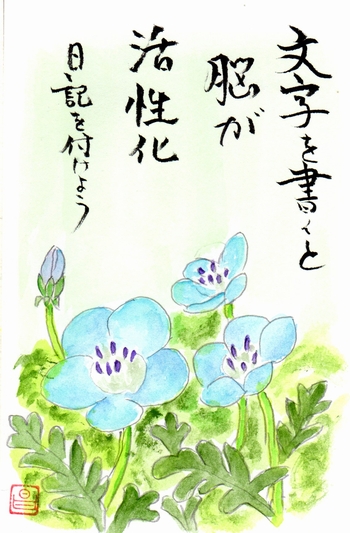 文字を書くと
脳が
活性化
日記を付けよう